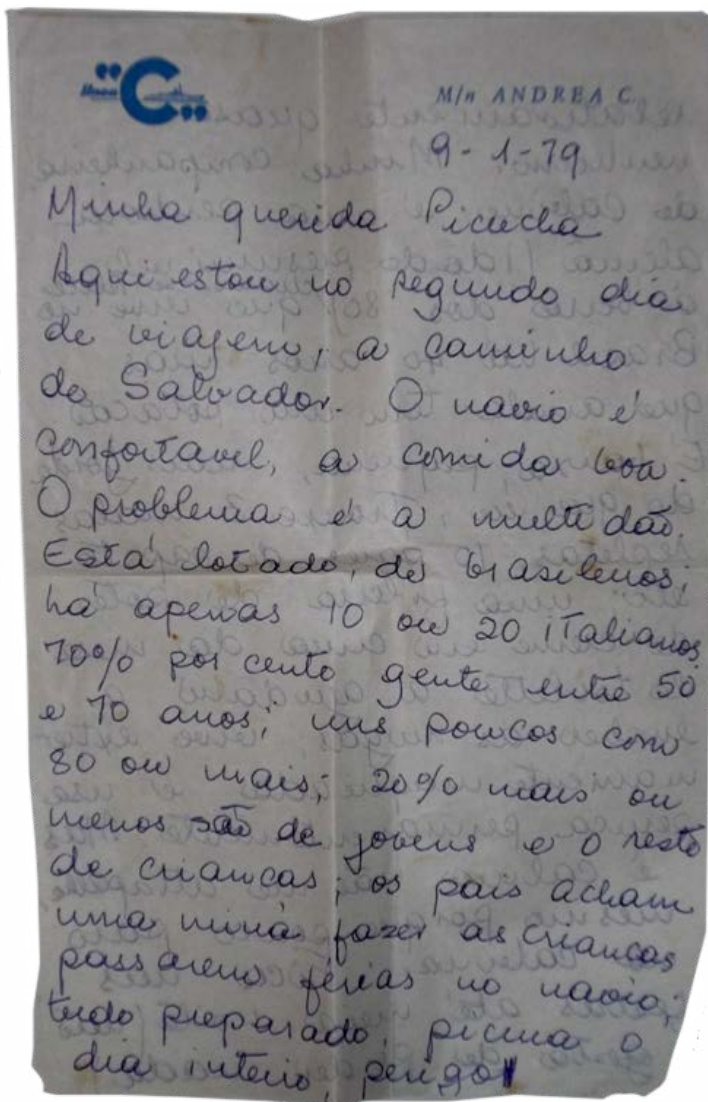 "C"
Linea
M/n ANDREA C.
9-1-79
Minha querida Picucha
Aqui estou no segundo dia
de viagem, a caminho
de Salvador. O navio é
confortavel, a comida boa.
O problema é a multidão.
Está lotado, de brasileiros;
há apenas 10 ou 20 italianos.
70% por cento gente entre 50
e 70 anos; uns poucos com
80 ou mais; 20% mais ou
menos são de jovens e o resto
de crianças; os pais acham
uma mina fazer as crianças
passarem férias no navio;
tudo preparado, picina o
dia inteiro, perigo